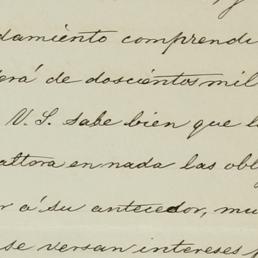 damiento comprendi
erá de doscientos mil
V.S. sabe bien que l
altora en nada las obl
r á su antecedor, mu
se versan intereses p